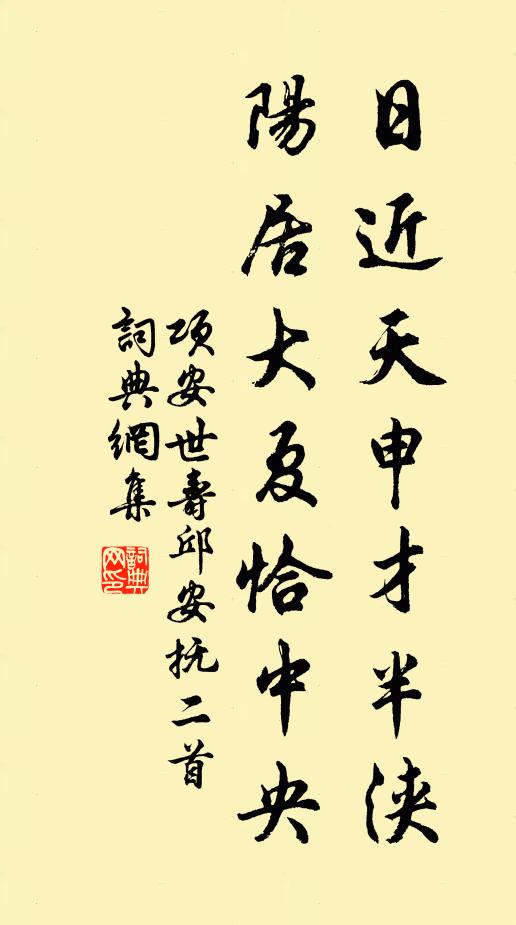 日近天申才半浹
陽居大夏恰中央
項安世壽邱安抚二首
詞典網集
詞典
网印